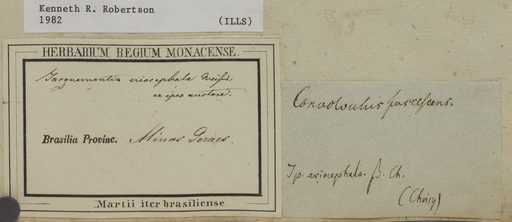 Kenneth R. Robertson
1982 (ILLS)
HERBARIUM REGIUM MONACENSE.
Jacquemontia eriocephala Meißn.
ex ipso auctore.
Brasilia Provinc. Minas Geraes.
Martii iter brasiliense.
Convolvulus fuscescens.
Ip. eriocephala. β. Ch.
(Choisy)